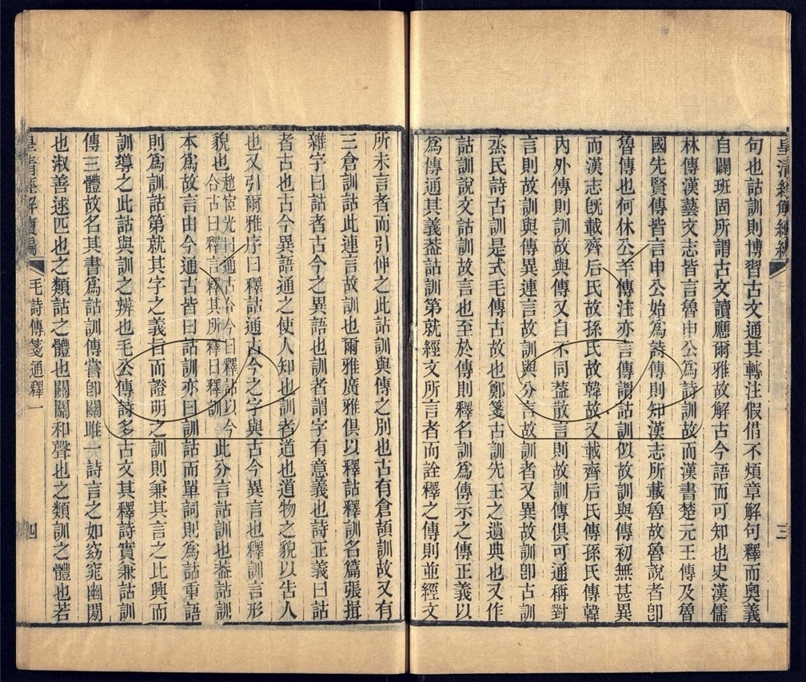 句也詁訓則博習古文通其轉注假借不煩章解句釋而奧義
自闢班固所謂古文讀應爾雅故解古今語而可知也史漢儒
林傳漢藝文志皆言魯申公為詩訓故而漢書楚元王傳及魯
國先賢傳皆言申公始為詩傳則知漢志所載魯故魯說者卽
魯傳也何休公羊傳注亦言傳謂詁訓似故訓與傳初無甚異
而漢志旣載齊后氏故孫氏故韓故又載齊后氏傳孫氏傳韓
內外傳則訓故與傳又自不同葢散言則故訓傳俱可通稱對
言則故訓與傳異連言故訓與分言故訓者又異故訓卽古訓
烝民詩古訓是式毛傳古故也鄭箋古訓先王之遺典也又作
詁訓說文詁訓故言也至於傳則釋名訓為傳示之傳正義以
為傳通其義葢詁訓第就經文所言者而詮釋之傳則並經文
三
所未言者而引伸之此詁訓與傳之別也古有倉頡訓故又有
三倉訓詁此連言故訓也爾雅廣雅俱以釋詁釋訓名篇張揖
雜字曰詁者古今之異語也訓者謂字有意義也詩正義曰詁
者古也古今異語通之使人知也訓者道也道物之貌以告人
也又引爾雅序曰釋詁通古今之字與古今異言也釋訓言形
貌也趙宧光曰通古合今曰釋詁以今合古曰釋言釋其所釋曰釋訓此分言詁訓也葢詁訓
本為故言由今通古皆曰詁訓亦曰訓詁而單詞則為詁重語
則為訓詁第就其字之義旨而證明之訓則兼其言之比興而
訓導之此詁與訓之辨也毛公傳詩多古文其釋詩實兼詁訓
傳三體故名其書為詁訓傳嘗卽關雎一詩言之如窈窕幽閒
也淑善逑匹也之類詁之體也關關和聲也之類訓之體也若
毛詩傳箋通釋一
四